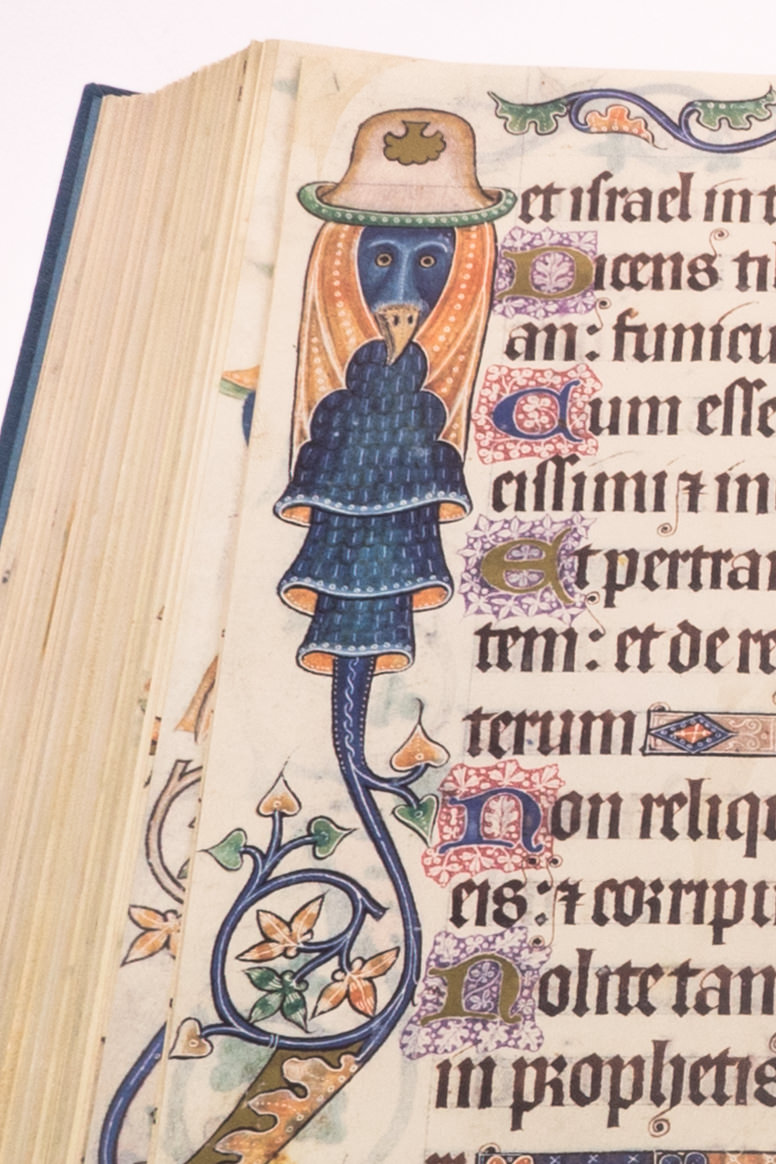 et israel in t
Dicens ti
an: funicu
Cum esse
cissimi ⁊ in
Et pertra
tem: et de re
terum
Non reliq
eis: ⁊ corripu
Nolite tan
in prophetis